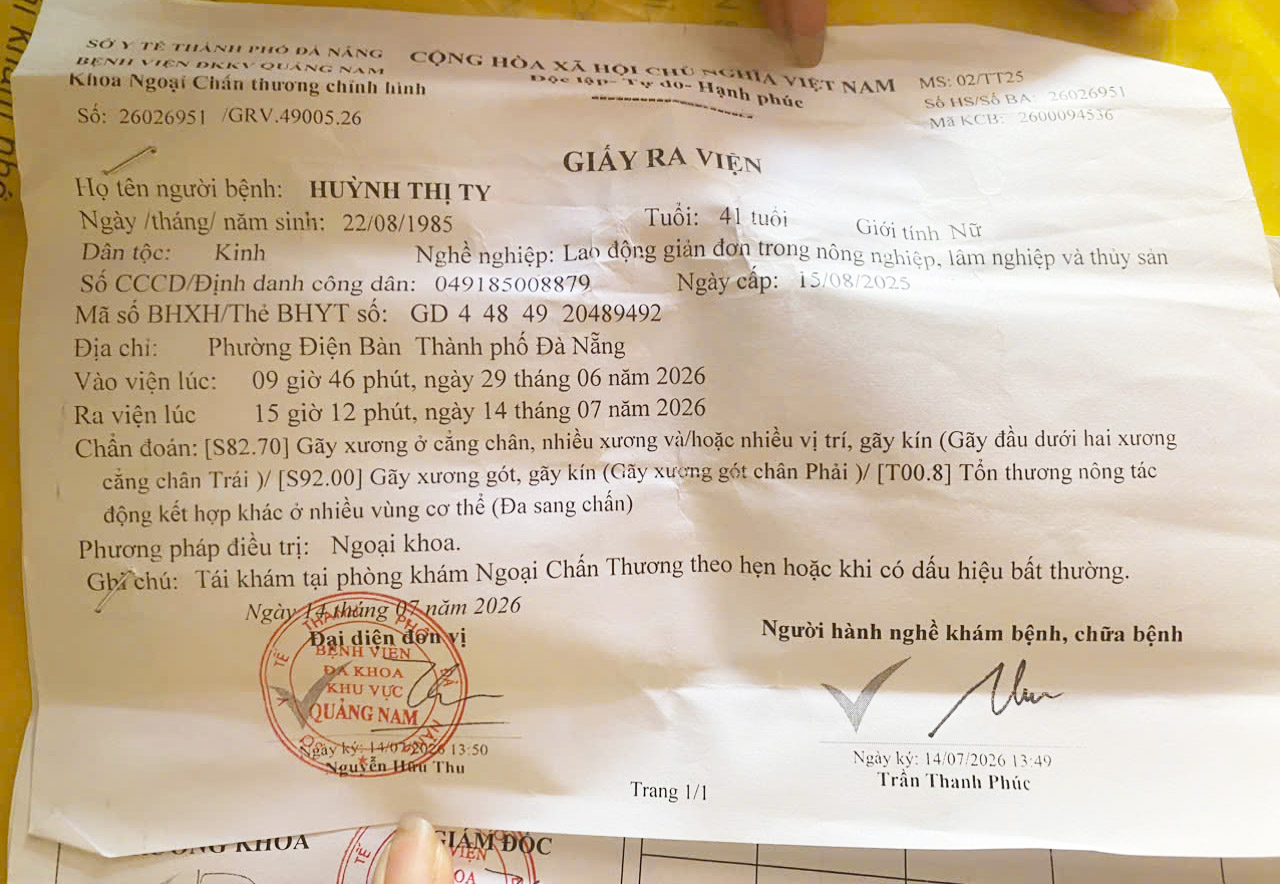 SỞ Y TẾ THÀNH PHỐ ĐÀ NẴNG
BỆNH VIỆN ĐKKV QUẢNG NAM
Khoa Ngoại Chấn thương chỉnh hình
Số: 26026951 /GRV.49005.26
CỘNG HÒA XÃ HỘI CHỦ NGHĨA VIỆT NAM
Độc lập- Tự do- Hạnh phúc
MS: 02/TT25
Số HS/Số BA: 26026951
Mã KCB: 2600094536
GIẤY RA VIỆN
Họ tên người bệnh: HUỲNH THỊ TY
Ngày /tháng/ năm sinh: 22/08/1985 Tuổi: 41 tuổi Giới tính Nữ
Dân tộc: Kinh Nghề nghiệp: Lao động giản đơn trong nông nghiệp, lâm nghiệp và thủy sản
Số CCCD/Định danh công dân: 049185008879 Ngày cấp: 15/08/2025
Mã số BHXH/Thẻ BHYT số: GD 4 48 49 20489492
Địa chỉ: Phường Điện Bàn Thành phố Đà Nẵng
Vào viện lúc: 09 giờ 46 phút, ngày 29 tháng 06 năm 2026
Ra viện lúc 15 giờ 12 phút, ngày 14 tháng 07 năm 2026
Chẩn đoán: [S82.70] Gãy xương ở cẳng chân, nhiều xương và/hoặc nhiều vị trí, gãy kín (Gãy đầu dưới hai xương
cẳng chân Trái )/ [S92.00] Gãy xương gót, gãy kín (Gãy xương gót chân Phải )/ [T00.8] Tổn thương nông tác
động kết hợp khác ở nhiều vùng cơ thể (Đa sang chấn)
Phương pháp điều trị: Ngoại khoa.
Ghi chú: Tái khám tại phòng khám Ngoại Chấn Thương theo hẹn hoặc khi có dấu hiệu bất thường.
Ngày 14 tháng 07 năm 2026
Đại diện đơn vị
BỆNH VIỆN
ĐA KHOA
KHU VỰC
QUẢNG NAM
Ngày ký: 14/07/2026 13:50
Nguyễn Hữu Thu
Người hành nghề khám bệnh, chữa bệnh
Ngày ký: 14/07/2026 13:49
Trần Thanh Phúc
Trang 1/1
KHOA
GIÁM ĐỐC
VIỆN